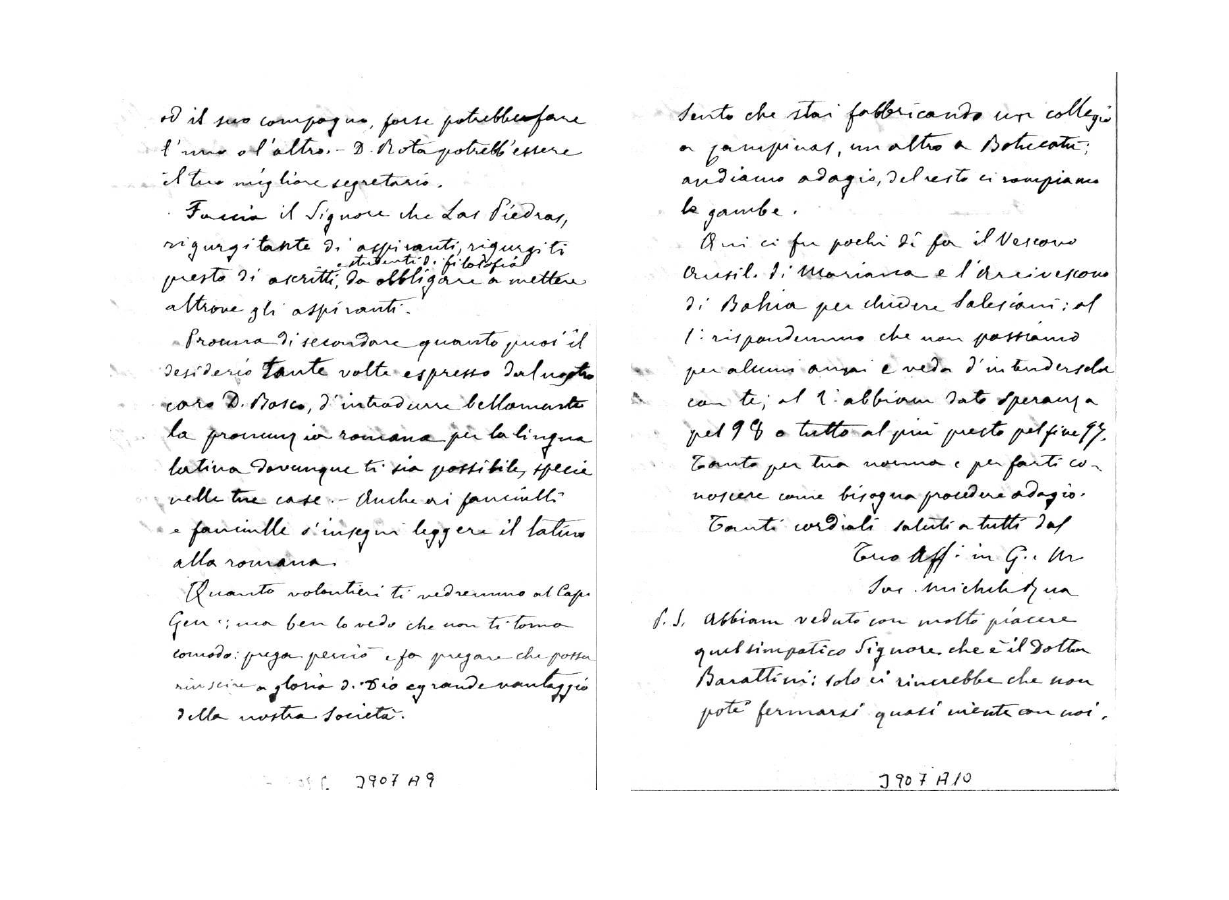 od il suo compagno, forse potrebber fare
l'uno o l'altro. - D. Rota potrebb'essere
il tuo migliore segretario.
Faccia il Signore che Las Piedras,
rigurgitante di aspiranti, rigurgiti
e studenti di filosofia
presto di ascritti, da obbligare a mettere
altrove gli aspiranti.
Procura di secondare quanto puoi il
desiderio tante volte espresso dal nostro
caro D. Bosco, d'introdurre bellamente
la pronunzia romana per la lingua
latina dovunque ti sia possibile, specie
nelle tue case. - Anche ai fanciulli
e fanciulle s'insegni leggere il latino
alla romana.
Quanto volontieri ti vedremmo al Cap.
Gen.; ma ben lo vedo che non ti torna
comodo: prega perciò e fa pregare che possa
riuscire a gloria di Dio e grande vantaggio
della nostra Società.
J907 A9
Sento che stai fabbricando un collegio
a Campinas, un altro a Botucatù;
andiamo adagio, del resto ci rompiamo
le gambe.
Qui ci fu pochi dì fa il Vescovo
Ausil. di Mariana e l'Arcivescovo
di Bahia per chiedere Salesiani; al
1º rispondemmo che non possiamo
per alcuni anni e veda d'intendersela
con te; al 2º abbiam dato speranza
pel 98 o tutto al più presto pel fine 97.
Tanto per tua norma e per farti co-
noscere come bisogna procedere adagio.
Tanti cordiali saluti a tutti dal
Tuo Aff. in G. e M
Sac. Michele Rua
P. S. Abbiam veduto con molto piacere
quel simpatico Signore che è il Dottor
Barattini: solo ci rincrebbe che non
potè fermarsi quasi niente con noi.
J907 A10